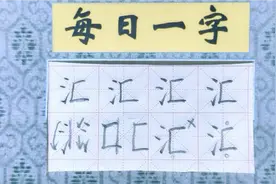 每日一字
汇 汇 汇 汇
汇 汇